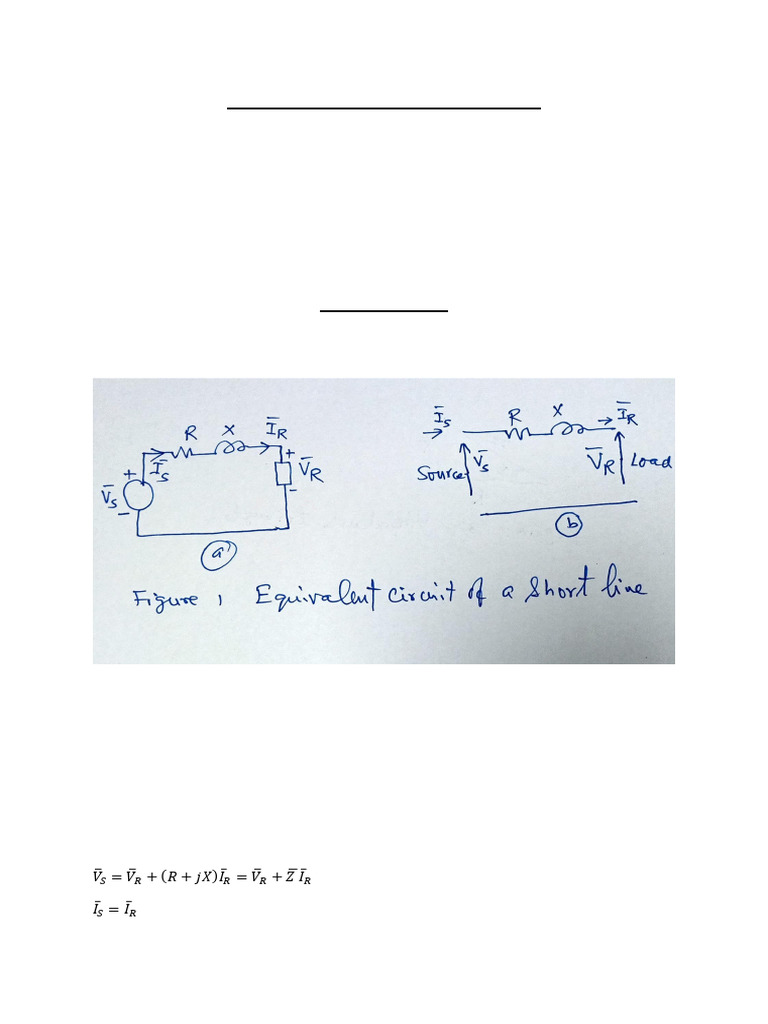 R X ĪR
ĪS
+ V̄S −
+ V̄R −
a
ĪS R X ĪR
Source V̄S V̄R Load
b
Figure 1 Equivalent circuit of a short line
V̄S = V̄R + (R + jX)ĪR = V̄R + Z̄ ĪR
ĪS = ĪR